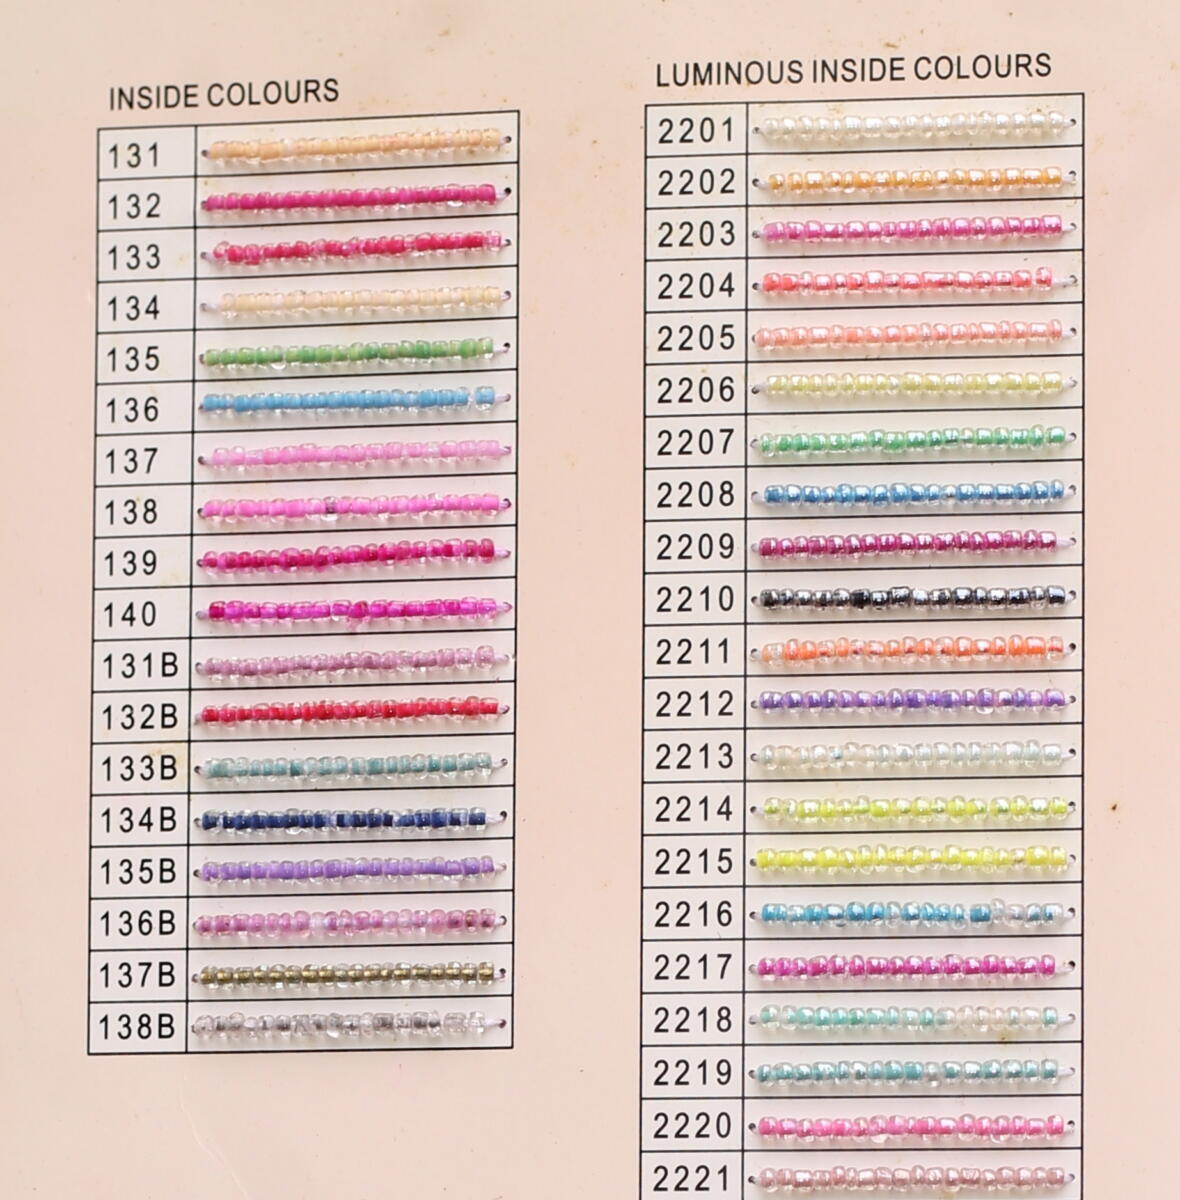 INSIDE COLOURS
131
132
133
134
135
136
137
138
139
140
131B
132B
133B
134B
135B
136B
137B
138B
LUMINOUS INSIDE COLOURS
2201
2202
2203
2204
2205
2206
2207
2208
2209
2210
2211
2212
2213
2214
2215
2216
2217
2218
2219
2220
2221